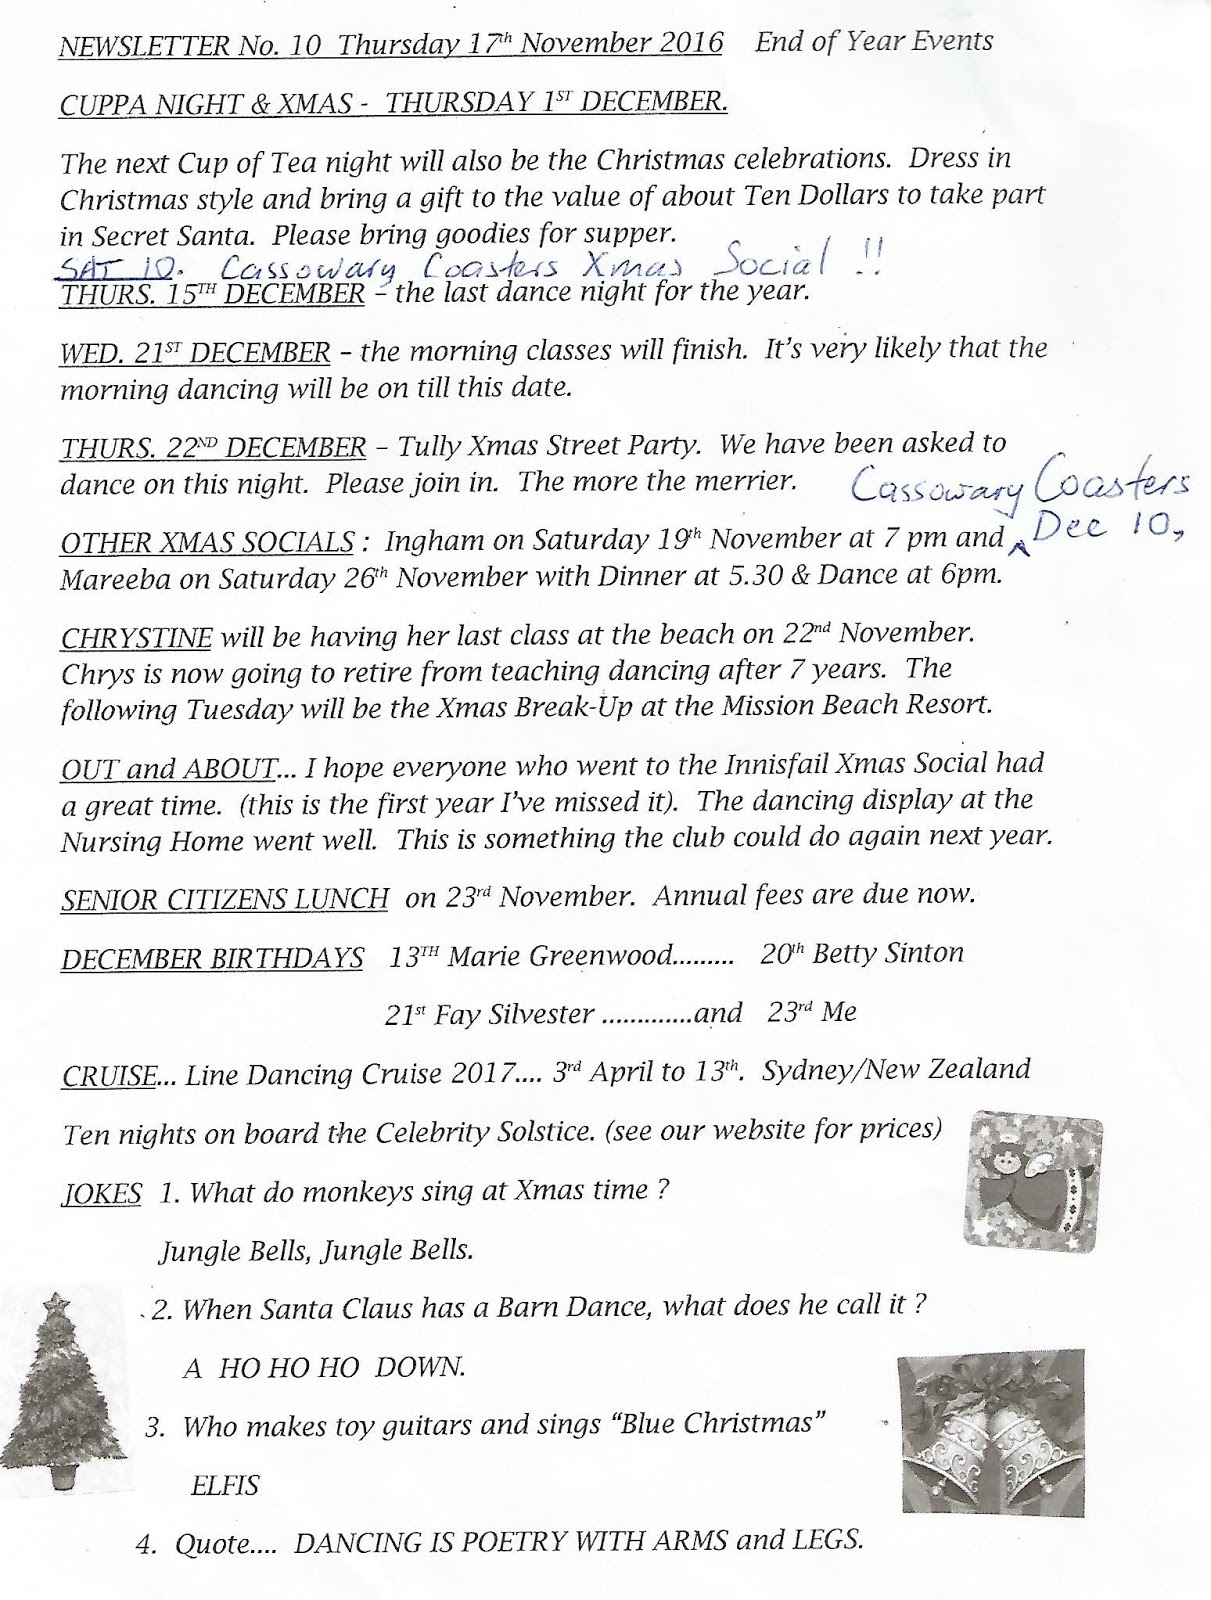 NEWSLETTER No. 10 Thursday 17th November 2016 End of Year Events
CUPPA NIGHT & XMAS - THURSDAY 1ST DECEMBER.
The next Cup of Tea night will also be the Christmas celebrations. Dress in
Christmas style and bring a gift to the value of about Ten Dollars to take part
in Secret Santa. Please bring goodies for supper.
SAT 10. Cassowary Coasters Xmas Social !!
THURS. 15TH DECEMBER – the last dance night for the year.
WED. 21ST DECEMBER – the morning classes will finish. It's very likely that the
morning dancing will be on till this date.
THURS. 22ND DECEMBER – Tully Xmas Street Party. We have been asked to
dance on this night. Please join in. The more the merrier.
Cassowary Coasters
Dec 10,
OTHER XMAS SOCIALS : Ingham on Saturday 19th November at 7 pm and
Mareeba on Saturday 26th November with Dinner at 5.30 & Dance at 6pm.
CHRYSTINE will be having her last class at the beach on 22nd November.
Chrys is now going to retire from teaching dancing after 7 years. The
following Tuesday will be the Xmas Break-Up at the Mission Beach Resort.
OUT and ABOUT... I hope everyone who went to the Innisfail Xmas Social had
a great time. (this is the first year I've missed it). The dancing display at the
Nursing Home went well. This is something the club could do again next year.
SENIOR CITIZENS LUNCH on 23rd November. Annual fees are due now.
DECEMBER BIRTHDAYS 13TH Marie Greenwood......... 20th Betty Sinton
21st Fay Silvester .............and 23rd Me
CRUISE... Line Dancing Cruise 2017.... 3rd April to 13th. Sydney/New Zealand
Ten nights on board the Celebrity Solstice. (see our website for prices)
JOKES 1. What do monkeys sing at Xmas time ?
Jungle Bells, Jungle Bells.
2. When Santa Claus has a Barn Dance, what does he call it ?
A HO HO HO DOWN.
3. Who makes toy guitars and sings "Blue Christmas"
ELFIS
4. Quote.... DANCING IS POETRY WITH ARMS and LEGS.